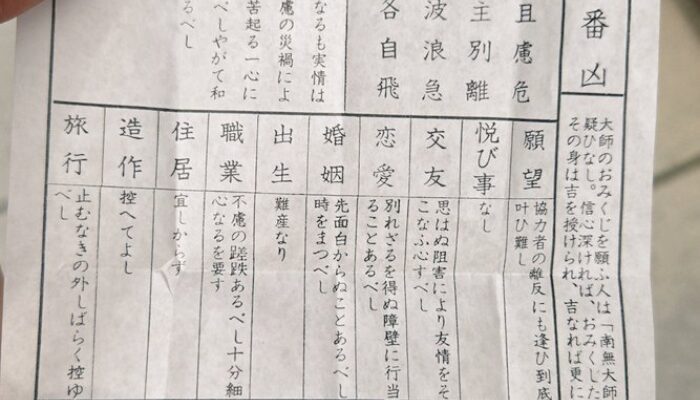 番凶
大師のおみくじを願ふ人は「南無大師
疑ひなし。信心深ければ、おみくじした
その身は吉を授けられ、吉なれば更に
且慮危
主別離
波浪急
各自飛
なるも実情は
慮の災禍によ
苦起る一心に
べしやがて和
るべし
願望
協力者の離反にも逢ひ到底
叶ひ難し
悦び事
なし
交友
思はぬ阻害により友情をそ
こなふ心すべし
恋愛
別れざるを得ぬ障壁に行当
ることあるべし
婚姻
先面白からぬことあるべし
時をまつべし
出生
難産なり
職業
不慮の蹉跌あるべし十分細
心なるを要す
住居
宜しからず
造作
控へてよし
旅行
止むなきの外しばらく控ゆ
べし